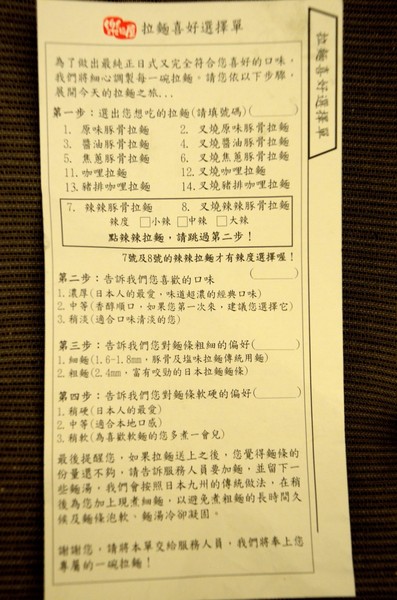 拉麵喜好選擇單
為了做出最純正日式又完全符合您喜好的口味，
我們將細心調製每一碗拉麵。請您依以下步驟，
展開今天的拉麵之旅...
第一步：選出您想吃的拉麵(請填號碼)(　　)
1. 原味豚骨拉麵　2. 叉燒原味豚骨拉麵
3. 醬油豚骨拉麵　4. 叉燒醬油豚骨拉麵
5. 焦蔥豚骨拉麵　6. 叉燒焦蔥豚骨拉麵
11.咖哩拉麵　12.叉燒咖哩拉麵
13.豬排咖哩拉麵　14.叉燒豬排咖哩拉麵
7. 辣辣豚骨拉麵　8. 叉燒辣辣豚骨拉麵
辣度 □小辣 □中辣 □大辣
點辣辣拉麵，請跳過第二步！
7號及8號的辣辣拉麵才有辣度選擇喔！
第二步：告訴我們您喜歡的口味(　　)
1.濃厚(日本人的最愛，味道超濃的經典口味)
2.中等(香醇順口，如果您第一次來，建議您選擇它)
3.稍淡(適合口味清淡的您)
第三步：告訴我們您對麵條粗細的偏好(　　)
1.細麵(1.6-1.8mm，豚骨及塩味拉麵傳統用麵)
2.粗麵(2.4mm，富有咬勁的日本拉麵麵條)
第四步：告訴我們您對麵條軟硬的偏好(　　)
1.稍硬(日本人的最愛)
2.中等(適合本地口感)
3.稍軟(為喜歡軟麵的您多煮一會兒)
最後提醒您，如果拉麵送上之後，您覺得麵條的
份量還不夠，請告訴服務人員要加麵，並留下一
些麵湯。我們會按照日本九州的傳統做法，在稍
後為您加上現煮細麵，以避免煮粗麵的長時間久
候及麵條泡軟、麵湯冷卻凝固。
謝謝您，請將本單交給服務人員，我們將奉上您
專屬的一碗拉麵！
拉麵喜好選擇單